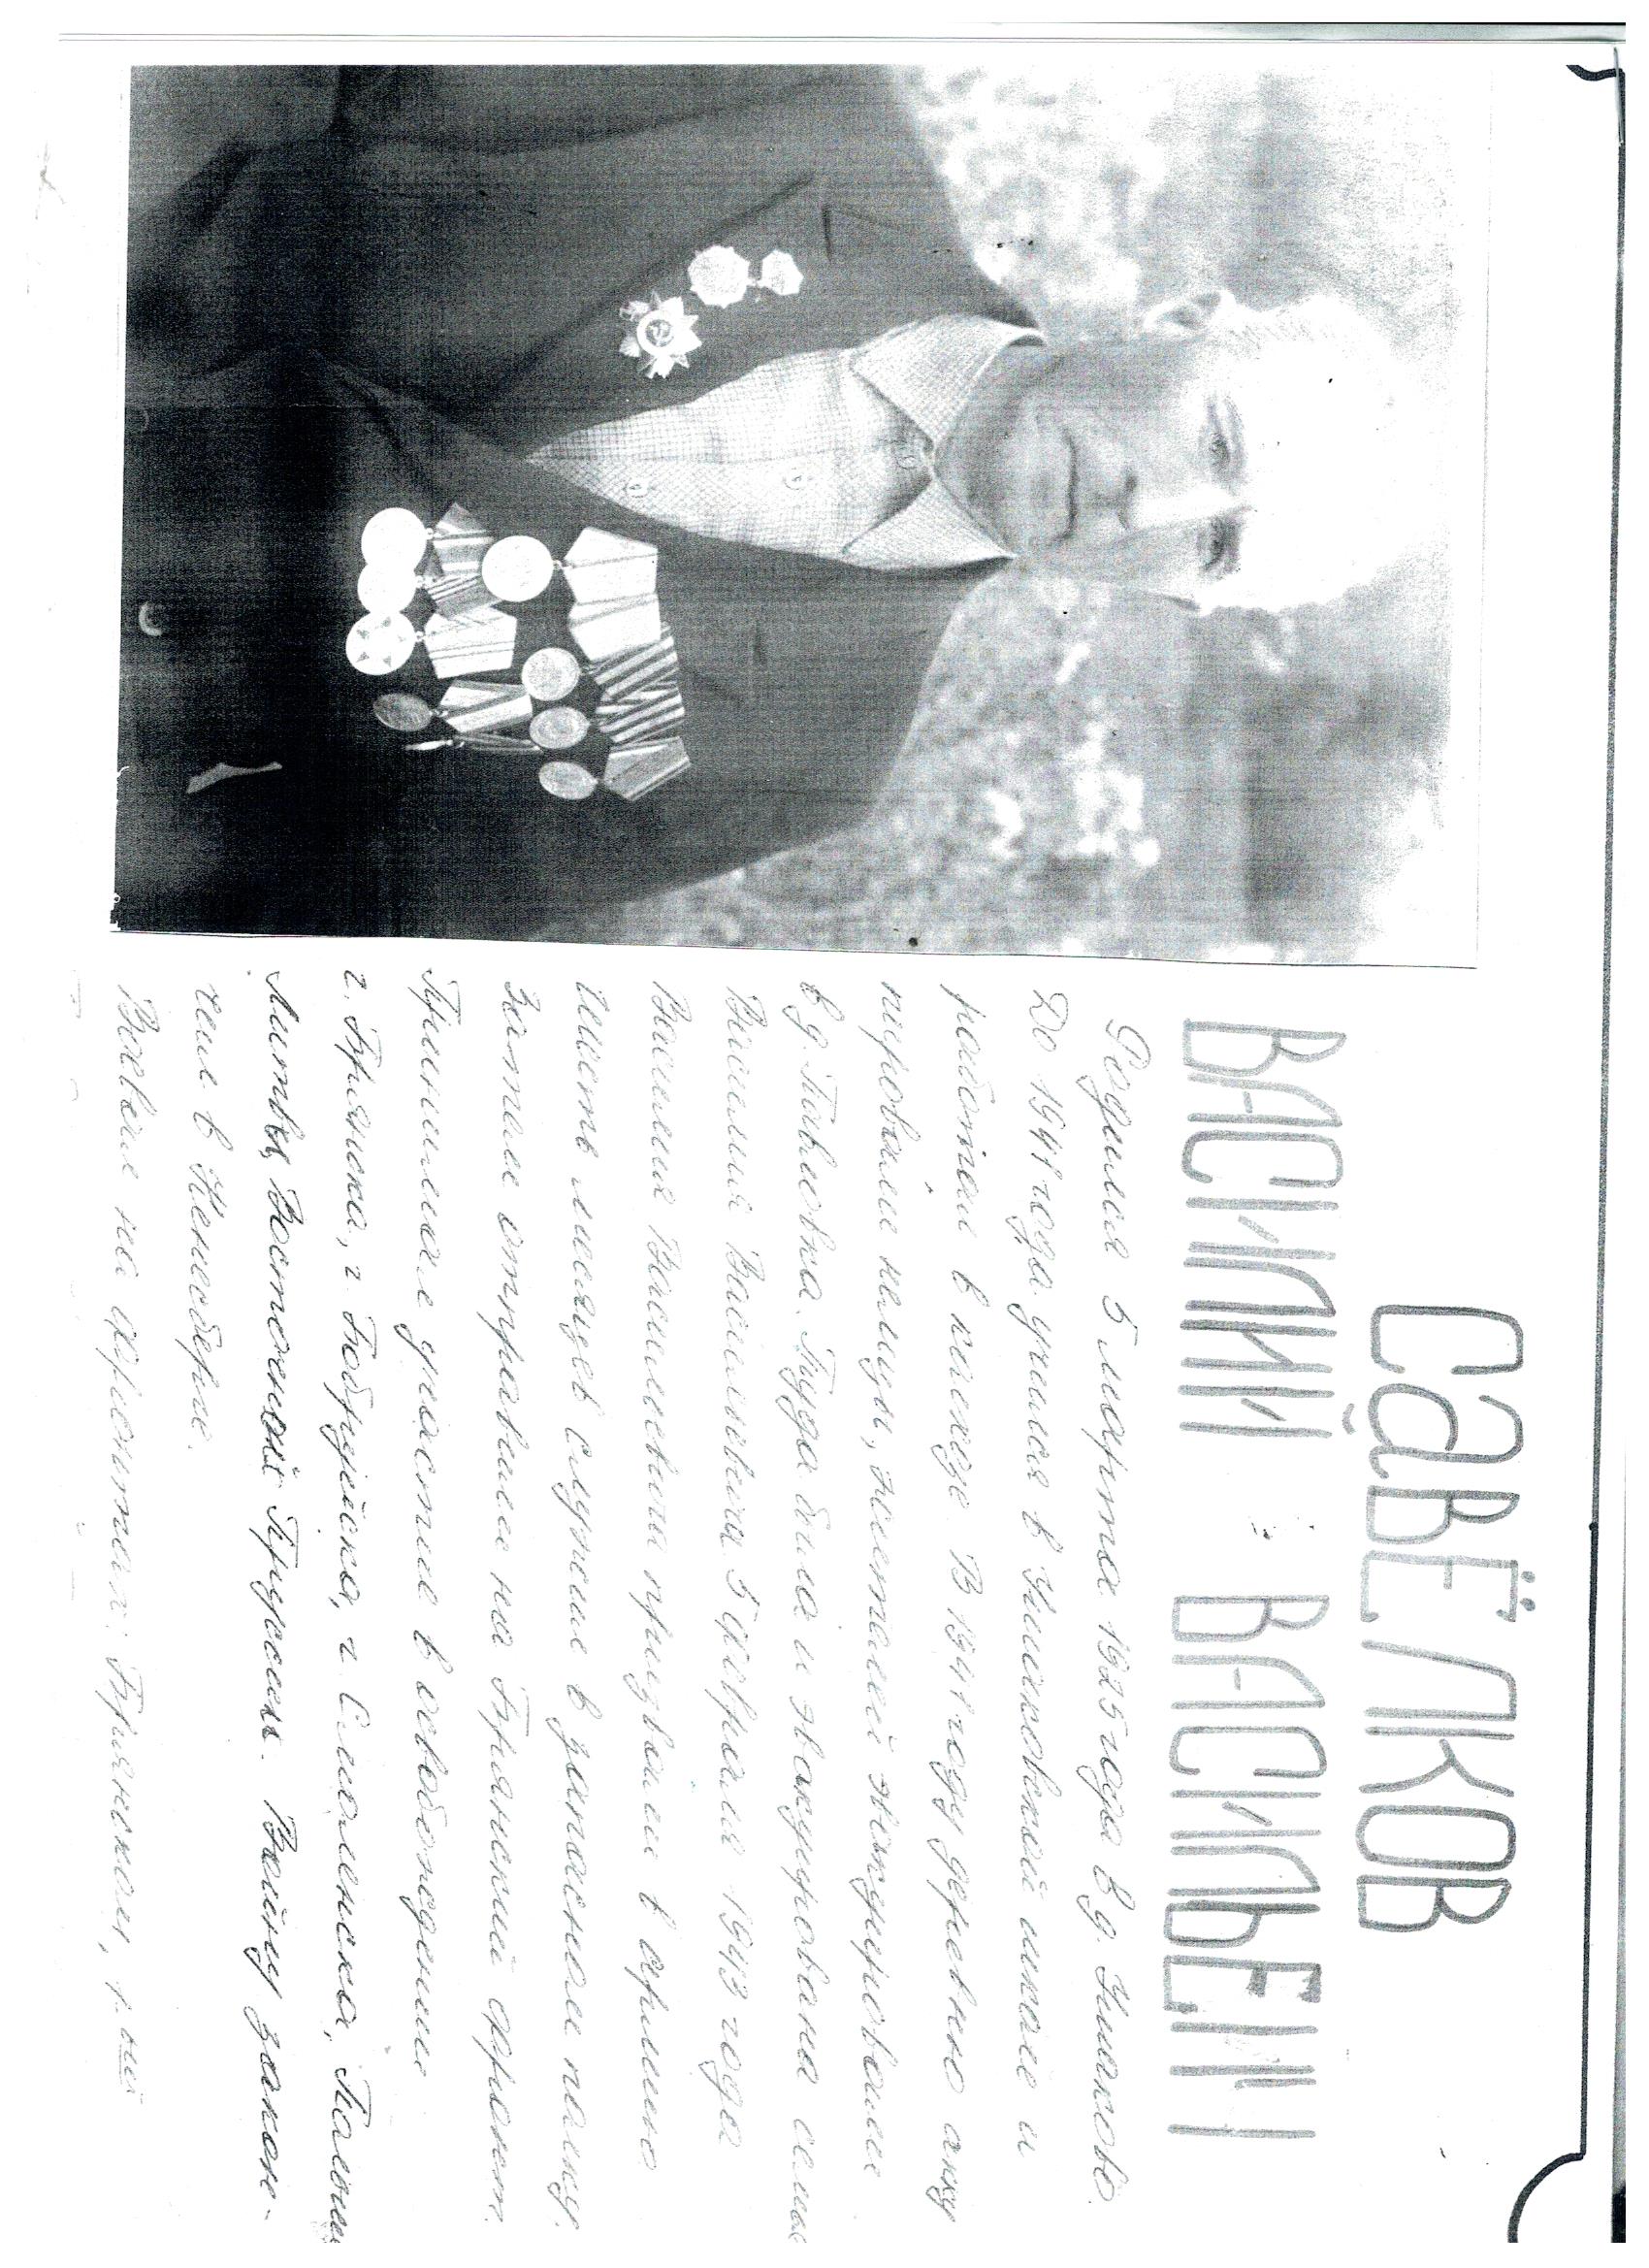 САВЁЛКОВ
ВАСИЛИЙ ВАСИЛЬЕВ
Родился 5 марта 1925 года в д.
До 1941 года учился в школе и
работал в колхозе. В 1941 году деревню окку
пировали немцы, жителей эвакуировали
в д. Павловка. Туда была и эвакуирована семья
Василия Васильевича. 5 февраля 1943 года
Василия Васильевича призвали в армию
Шесть месяцев служил в запасном полку.
Затем отправили на Брянский фронт.
Принимал участие в освобождении
г. Брянска, г. Бобруйска, г. Смоленска, Польши
Литвы, Восточной Пруссии. Войну закон-
чил в Кенигсберге.
Воевал на фронтах: Брянском,